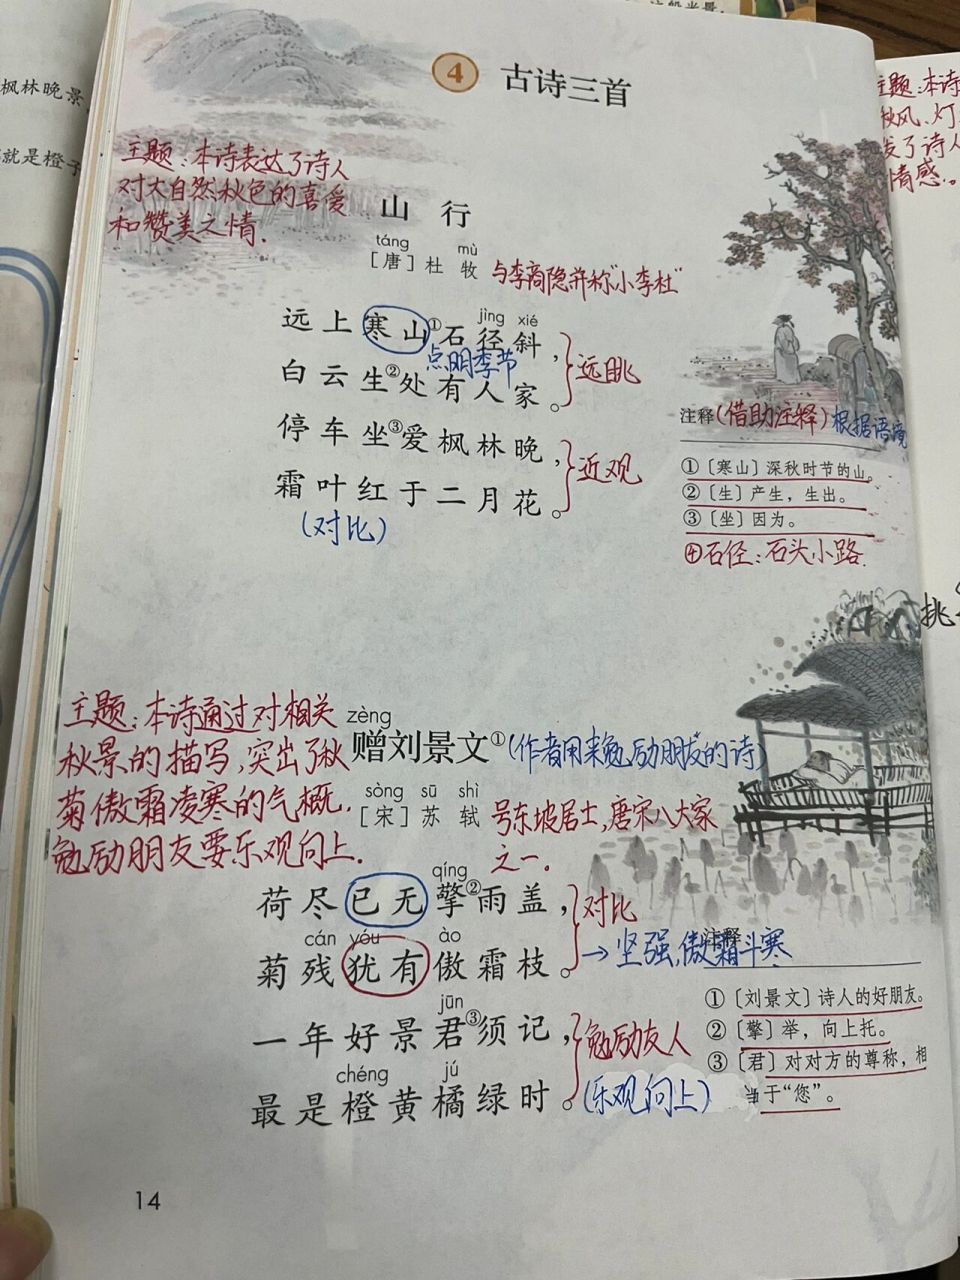 枫林晚景
就是橙子
④ 古诗三首
主题：本诗表达了诗人
对大自然秋色的喜爱
和赞美之情.
山 行
táng mù
[唐] 杜 牧 与李商隐并称"小李杜"
jìng xié
远上寒山①石径斜， 远眺
点明季节
白云生②处有人家。
停车坐③爱枫林晚， 近观
霜叶红于二月花。
(对比)
注释(借助注释)根据语境
①〔寒山〕深秋时节的山。
②〔生〕产生，生出。
③〔坐〕因为。
④石径：石头小路.
主题：本诗
秋风、灯
发了诗人
情感。
挑
主题：本诗通过对相关
秋景的描写,突出了秋
菊傲霜凌寒的气概.
勉励朋友要乐观向上.
zèng
赠刘景文① (作者用来勉励朋友的诗)
sòng sū shì
[宋] 苏 轼 号东坡居士,唐宋八大家
之一.
qíng
荷尽已无擎②雨盖， 对比
cán yóu ào
菊残犹有傲霜枝。 →坚强,傲霜斗寒
jūn
一年好景君③须记， 勉励友人
chéng jú
最是橙黄橘绿时。 (乐观向上)
注释
①〔刘景文〕诗人的好朋友。
②〔擎〕举，向上托。
③〔君〕对对方的尊称，相
当于“您”。
14